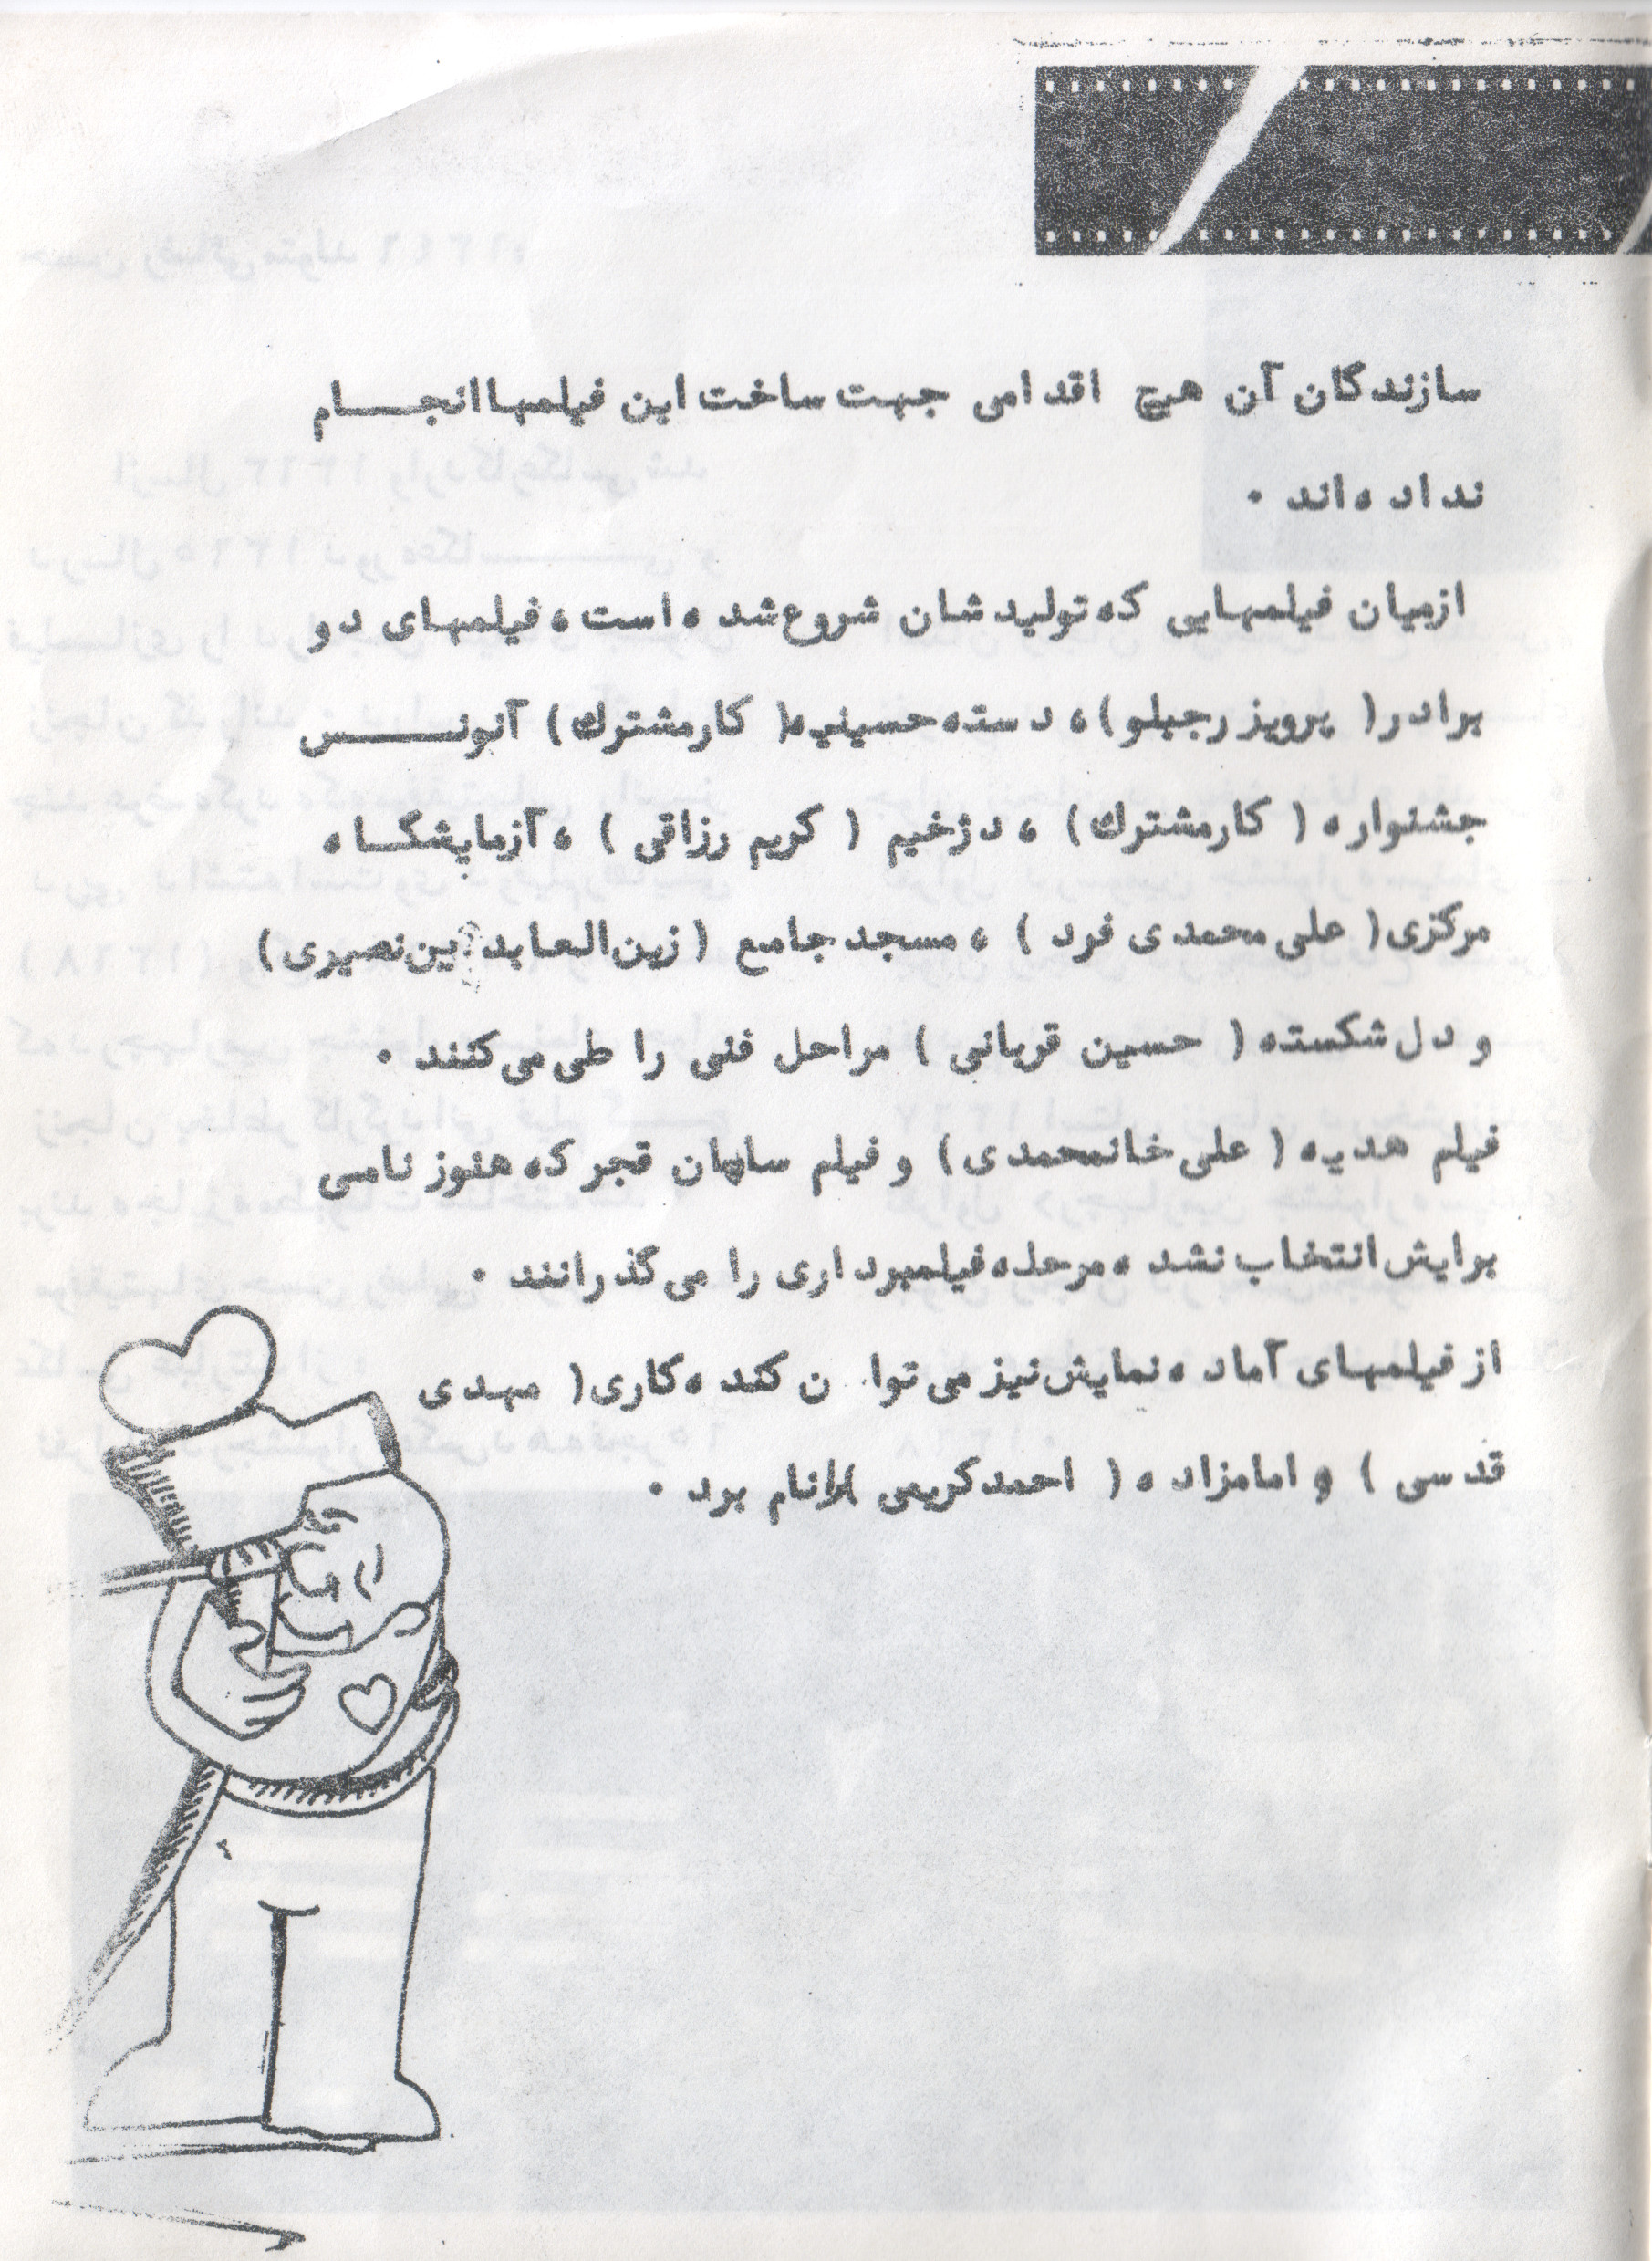 سازندگان آن هیچ اقدامی جهت ساخت این فیلمها انجام
نداده‌اند .
ازمیان فیلمهایی که تولیدشان شروع شده است ، فیلمهای دو
برادر ( پرویز رجبلو ) ، دسته حسینیه ( کارمشترک ) آنونس
جشنواره ( کارمشترک ) ، دژخیم ( کریم رزاقی ) ، آزمایشگاه
مرکزی ( علی محمدی فرد ) ، مسجد جامع ( زین‌العابدین نصیری )
و دل شکسته ( حسین قربانی ) مراحل فنی را طی می‌کنند .
فیلم هدیه ( علی خانمحمدی ) و فیلم سامان قجر که هنوز نامی
برایش انتخاب نشده مرحله فیلمبرداری را می‌گذرانند .
از فیلمهای آماده نمایش نیز می‌توان کنده‌کاری ( مهدی
قدسی ) و امامزاده ( احمد کریمی ) را نام برد .